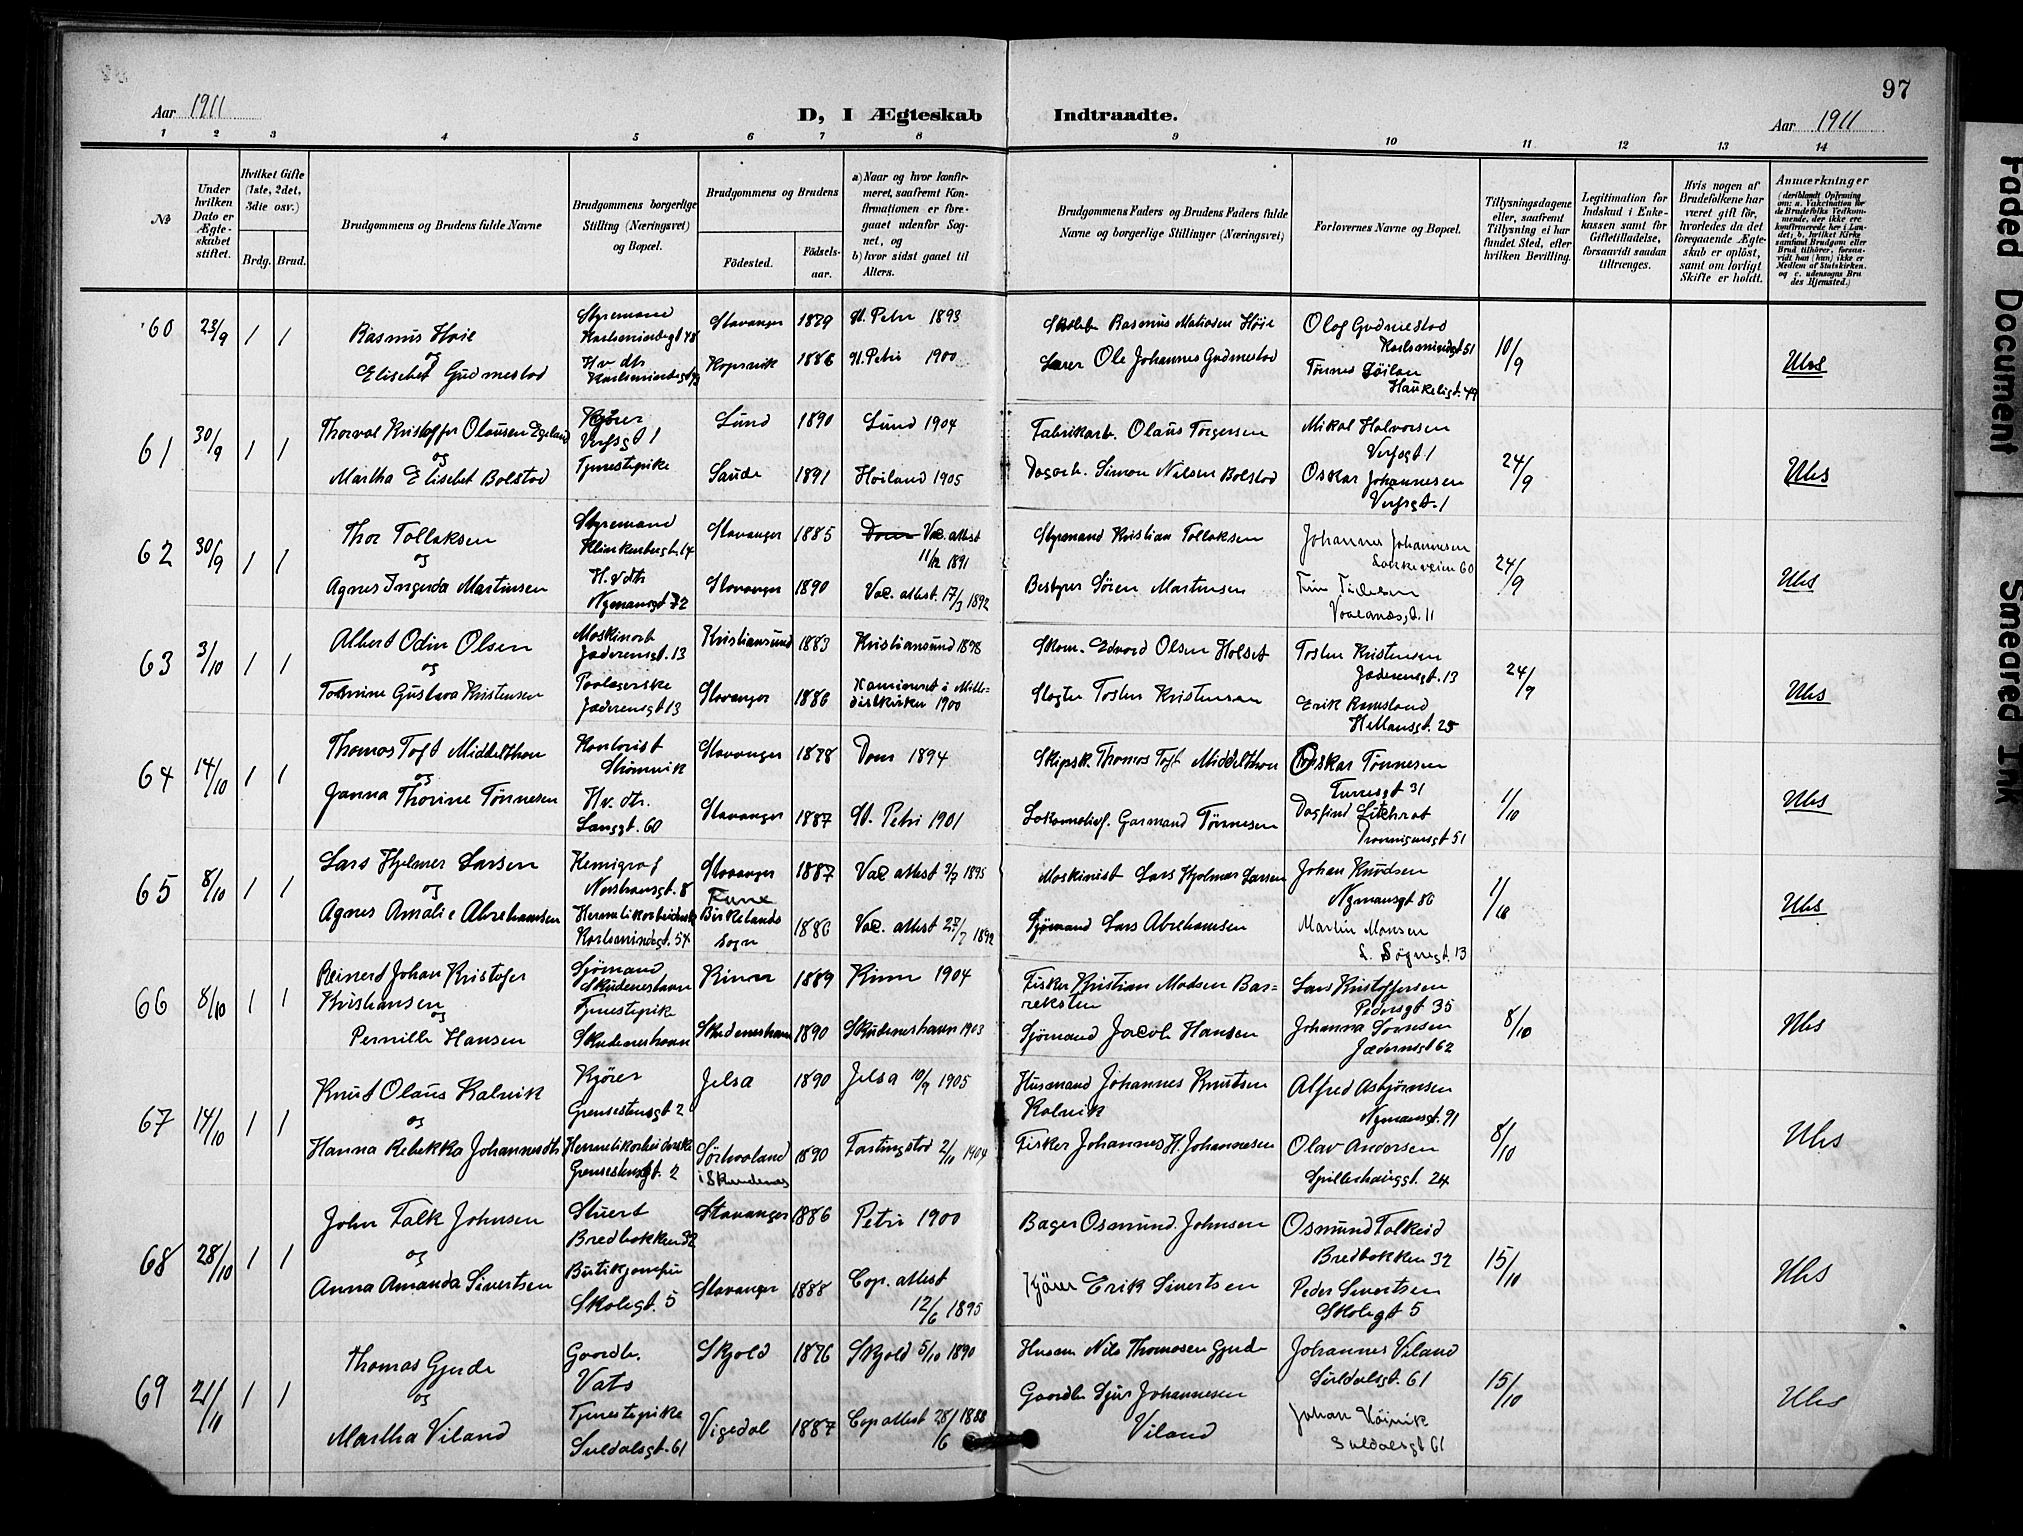 97
Aar 1911
D, I Ægteskab Indtraadte.
Aar 1911
1 2 3 4 5 6 7 8 9 10 11 12 13 14
№
Under hvilken Dato er Ægteskabet stiftet.
Hvilket Gifte (1ste, 2det, 3die osv.)
Brdg. Brud.
Brudgommens og Brudens fulde Navne
Brudgommens borgerlige Stilling (Næringsvei) og Bopæl.
Brudgommens og Brudens
Fødested.
Fødsels-aar.
a) Naar og hvor konfirmeret, saafremt Konfirmationen er foregaaet udenfor Sognet, og
b) hvor sidst gaaet til Alters.
Brudgommens Faders og Brudens Faders fulde Navne og borgerlige Stillinger (Næringsvei)
Forlovernes Navne og Bopæl.
Tillysningsdagene eller, saafremt Tillysning ei har fundet Sted, efter hvilken Bevilling.
Legitimation for Indskud i Enkekassen samt for Giftetilladelse, forsaavidt saadan tiltrænges.
Hvis nogen af Brudefolkene har været gift før, hvorledes da det foregaaende Ægteskab er opløst, samt om lovligt Skifte er holdt.
Anmærkninger
(deriblandt Oplysning om: a. Vakcination for de Brudefolks Vedkommende, der ikke ere konfirmerede her i Landet; b. hvilket Kirkesamfund Brudgom eller Brud tilhører, forsaavidt han (hun) ikke er Medlem af Statskirken. og c. udensogns Brudes Hjemsted.)
60 23/9 1 1
Rasmus Høie
og
Elisebet Gudmestad
Styremand
Karlsmindegt 48
H.v. dtr
Stavanger 1879 St. Petri 1893
Kopervik 1886 St. Petri 1900
Rasmus Matiasen Høie
Lærer Ole Johannes Gudmestad
Olaf Gudmestad
Karlsmindegt 51
Tønnes
Haukeligt. 49
10/9
61 30/9 1 1
Thorval Kristoffer Olausen Egeland
og
Martha Elisebet Bolstad
Kjører
Verfsgt 1
Tjenestepike
Lund 1890 Lund 1904
Saude 1891 Høiland 1905
Fabrikarb. Olaus Torgersen
Dagarb. Simon Nilsen Bolstad
Mikal Halvorsen
Verfsgt 1
Oskar Johannesen
Verfsgt. 1
24/9
62 30/9 1 1
Thor Tollaksen
og
Agnes Ingerda Martinsen
Styremand
Klinkenbergt. 14
H.v dtr
Nymansgt 72
Stavanger 1885 Vac. attest
11/12 1891
Stavanger 1890 Vac. attest. 17/3 1892
Styrmand Kristian Tollaksen
Bestyrer Søren Martinsen
Johannes Johannesen
Løkkeveien 60
Vaalandsgt. 11
24/9
63 3/10 1 1
Albert Odin Olsen
og
Tomine Gustava Kristensen
Maskinarb
Jæderensgt. 13
Jæderensgt 13
Kristiansund 1883 Kristiansund 1898
Stavanger 1886 i Metho-
distkirken 1900
Skom. Edvard Olsen Holset
Slagter Tosten Kristensen
Tosten Kristensen
Jæderensgt. 13
Erik
Hetlansgt. 25
24/9
64 14/10 1 1
Thomas Toft Middelthon
og
Janna Thorine Tønnesen
Kontorist
Strømvik
H.v. dtr.
Langgt. 60
Stavanger 1878 Dom 1894
Stavanger 1887 St. Petri 1901
Skipsk. Thomas Toft Middelthon
Lokomotivf. Garmand Tønnesen
Oskar Tønnesen
31
Dagfind
Dronnigensgt 51
1/10
65 8/10 1 1
Lars Hjelmer Larsen
og
Agnes Amalie Abrehamsen
Kemigraf
8
Hermetikarbeiderske
Karlsmindegt. 54
Stavanger 1887 Vac attest 3/7 1895
Birkelands
sogn 1886 Vac. attest 27/7 1892
Maskinist Lars Hjelmer Larsen
Sjømand Lars Abrehamsen
Johan Knudsen
Nymansgt 86
Martin Monsen
13
1/10
66 8/10 1 1
Reinert Johan Kristofer
Kristiansen
og
Pernille Hansen
Sjømand
Skudeneshavn
Tjenestepik
Skudeneshavn
Kinn 1889 Kinn 1904
Skudeneshavn 1890 Skudeneshavn 1903
Fisker Kristian Madsen Bar-
reksten
Sjømand Jacob Hansen
Lars Kristoffersen
Pedersgt 35
Johanna
Jæderensgt 62
8/10
67 14/10 1 1
Knut Olaus Kalvik
og
Hanna Rebekka Johannesdtr
Kjører
Grensestensgt 2
Hermetikarbeiderske
Grensestensgt. 2
Jelsa 1890 Jelsa 10/9 1905
Sørhaaland
i Skudenes 1890 2/11 1904
Husmand Johannes Knutsen
Kalvik
Fisker Johannes H. Johannesen
Alfred Asbjørnsen
Nymansgt. 91
Olav Andersen
Spilderhaugsgt. 24
8/10
68 28/10 1 1
John Falk Johnsen
og
Anna Amanda Sivertsen
Stuert
Bredbakken 32
Butikjomfru
Skolegt. 5
Stavanger 1886 Petri 1900
Stavanger 1888 Cop. attest
12/6 1895
Bager Osmund Johnsen
Kjører Erik Sivertsen
Osmund Falkeid
Bredbakken 32
Peder Sivertsen
Skolegt 5
15/10
69 21/11 1 1
Thomas Gjerde
og
Martha Viland
Gaardb.
Vats
Tjenestepike
Suldalsgt. 61
Skjold 1876 Skjold 5/10 1890
Vigedal 1887 Cop attest 28/6 1888
Husm Nils Thomasen Gjerde
Gaardb Sjur Johannesen
Viland
Johannes Viland
Suldalsgt. 61
Johan
Suldalsgt 61
15/10
Faded Document
Smeared Ink